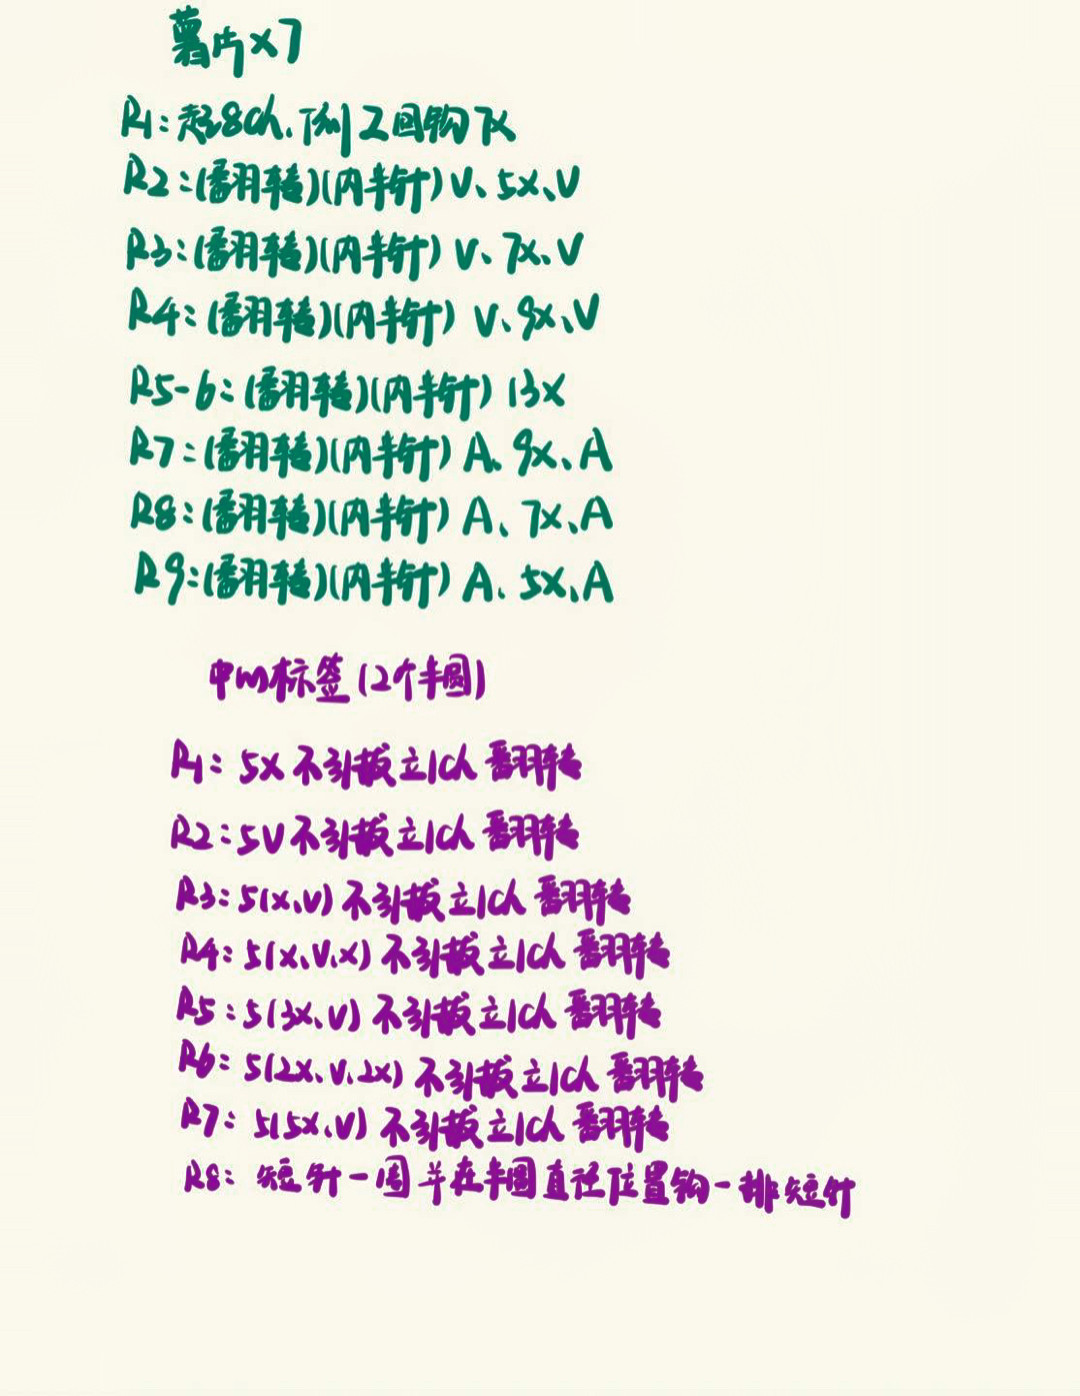 薯片x7
R1:起8ch.倒2回钩7X
R2:(翻转)(内半针)V、5X、V
R3:(翻转)(内半针)V、7X、V
R4:(翻转)(内半针)V、9X、V
R5-6:(翻转)(内半针)13X
R7:(翻转)(内半针)A、9X、A
R8:(翻转)(内半针)A、7X、A
R9:(翻转)(内半针)A、5X、A
中间标签(2个半圆)
R1:5X不引拔立1ch翻转
R2:5V不引拔立1ch翻转
R3:5(X、V)不引拔立1ch翻转
R4:5(X、V、X)不引拔立1ch翻转
R5:5(3X、V)不引拔立1ch翻转
R6:5(2X、V、2X)不引拔立1ch翻转
R7:5(5X、V)不引拔立1ch翻转
R8:短针一周并在半圆直径位置钩一排短针